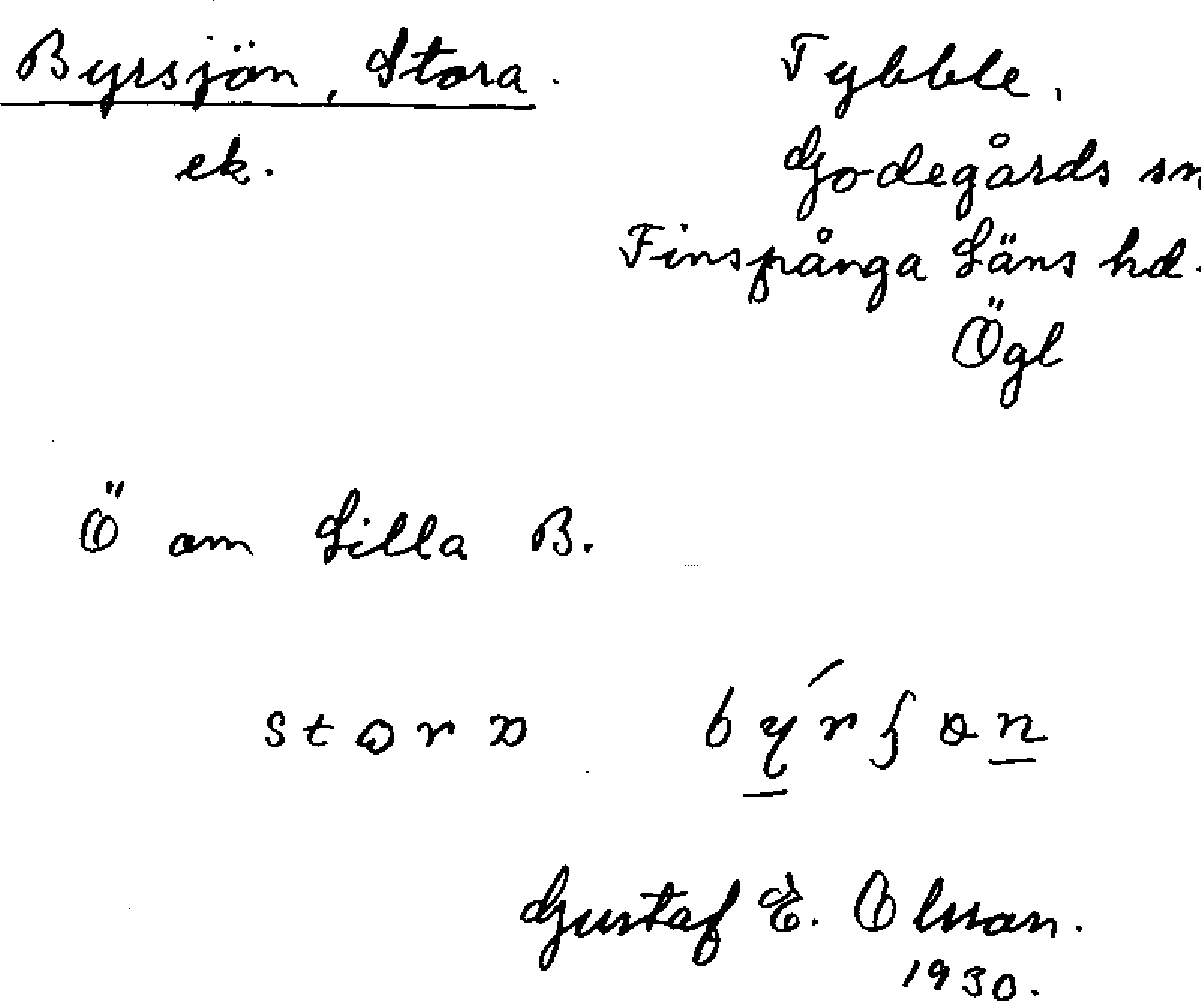 Byrsjön, Stora.
ek.
Tybble.
Godegårds sn
Finspånga Läns hd.
Ögl
Ö om Lilla B.
Gustaf E. Olsson.
1930.